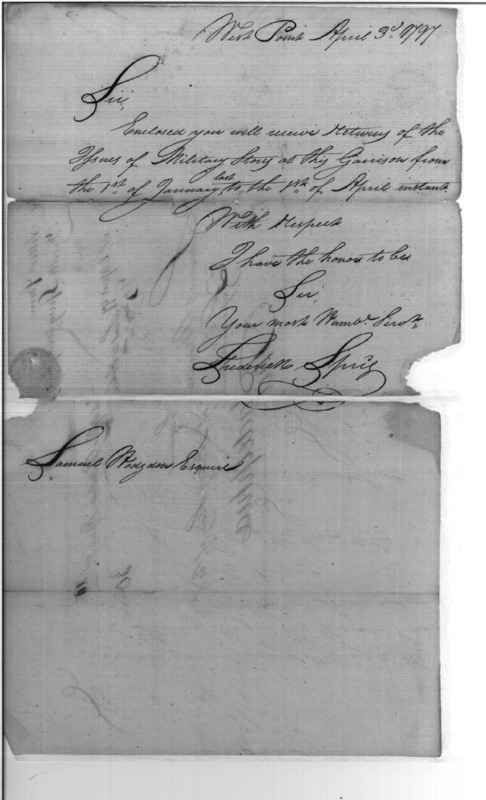 West Point April 3d 1797
Sir,
Enclosed you will receive Returns of the
Issues of Military Stores at this Garrison from
the 1st of January last to the 1st of April instant
With Respect
I have the honor to be
Sir,
Your most Humbe. Servt.
Frederick
Samuel Hodgdon Esquire